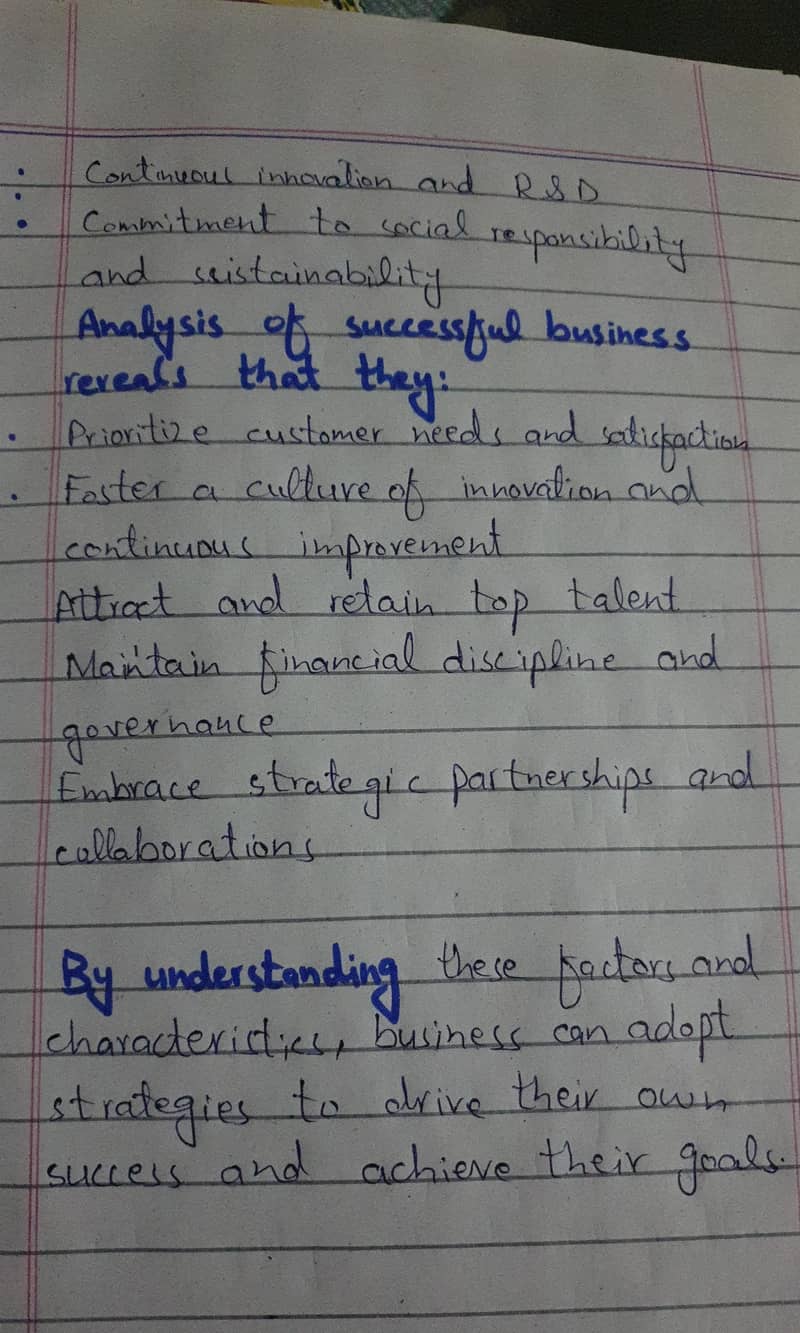 • Continuous innovation and R&D
• Commitment to social responsibility
and sustainability
Analysis of successful business
reveals that they:
• Prioritize customer needs and satisfaction
• Foster a culture of innovation and
continuous improvement
Attract and retain top talent
Maintain financial discipline and
governance
Embrace strategic partnerships and
collaborations
By understanding these factors and
characteristics, business can adopt
strategies to drive their own
success and achieve their goals.